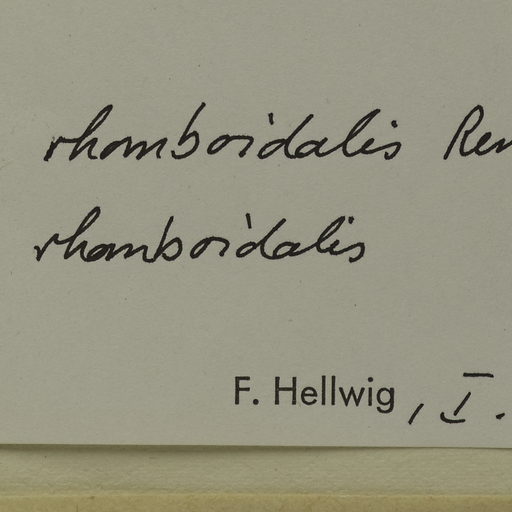 rhomboidalis Ren
rhomboidalis
F. Hellwig, I.